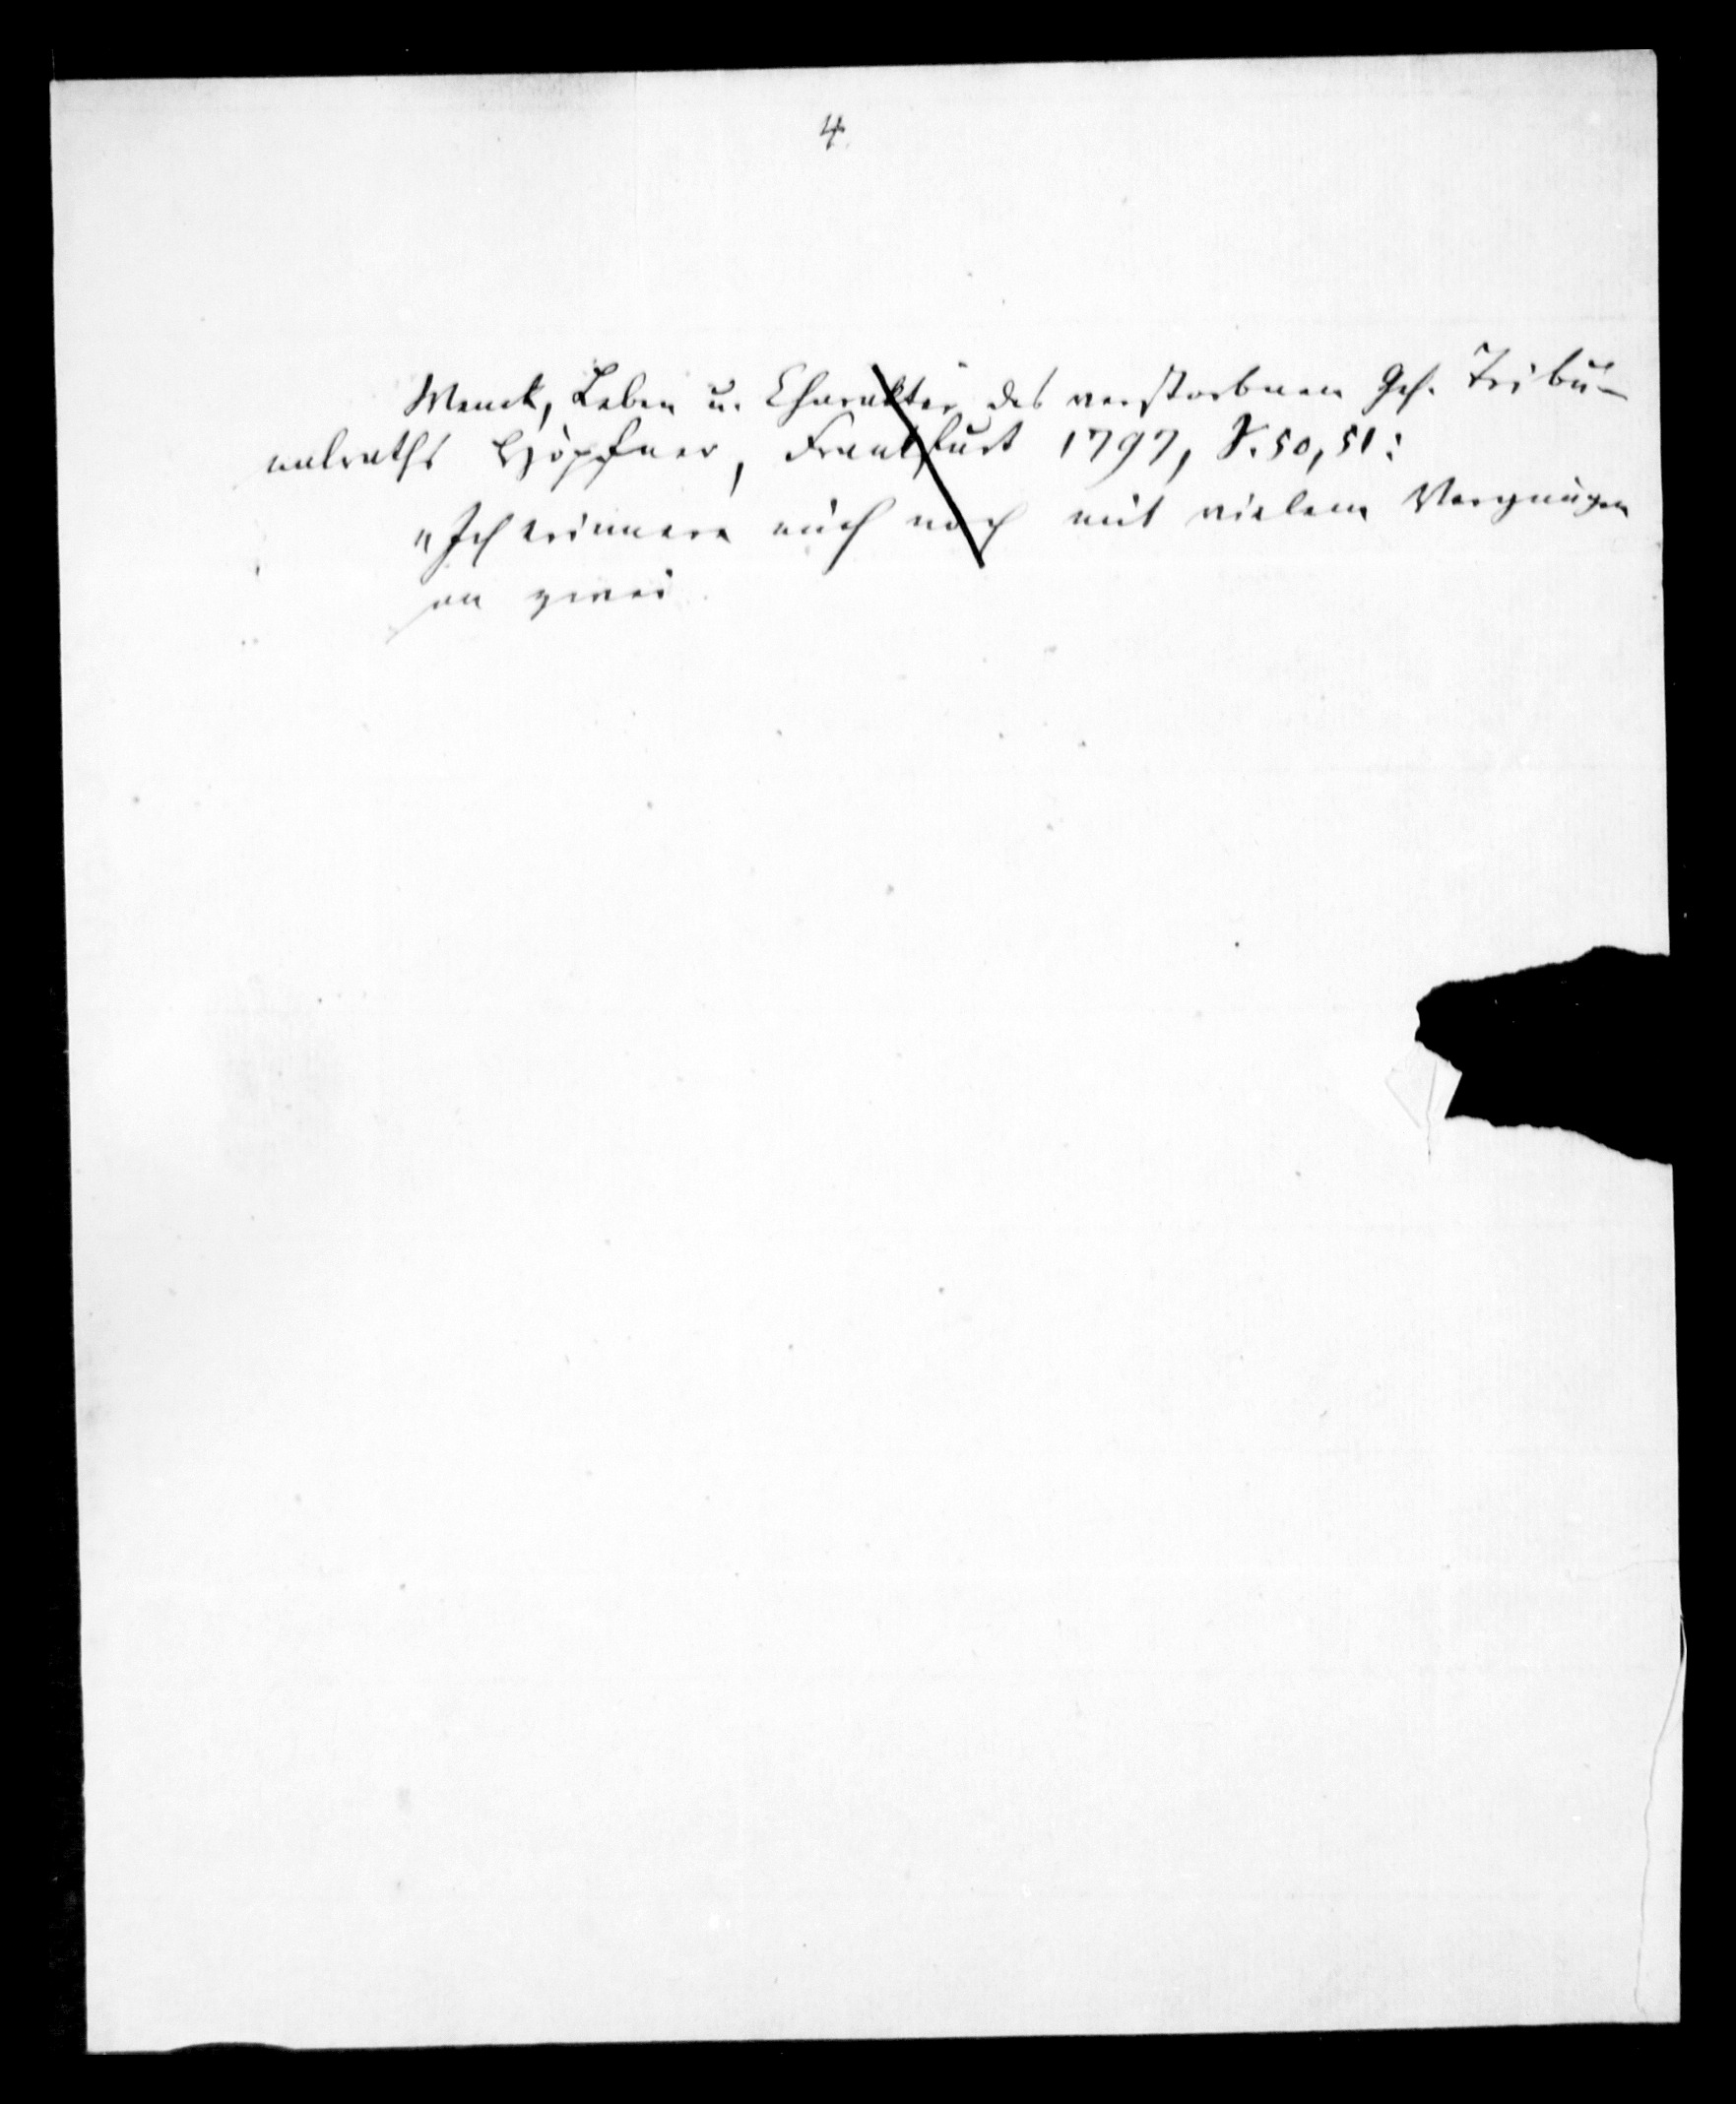 4.
Wenck, Leben u. Charakter des verstorbenen Geh. Tribu-
nalraths Höpfner, Frankfurt 1797, S. 50, 51:
„Ich erinnere mich noch mit vielem Vergnügen
an zwei